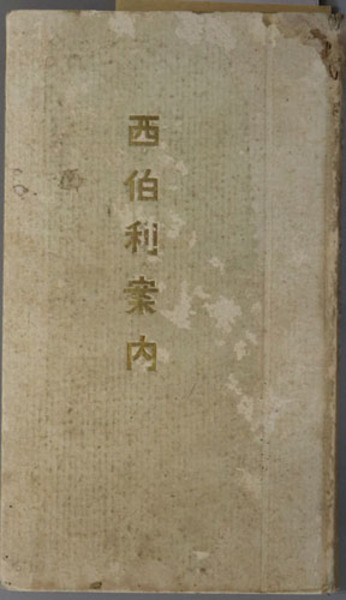 西伯利案内